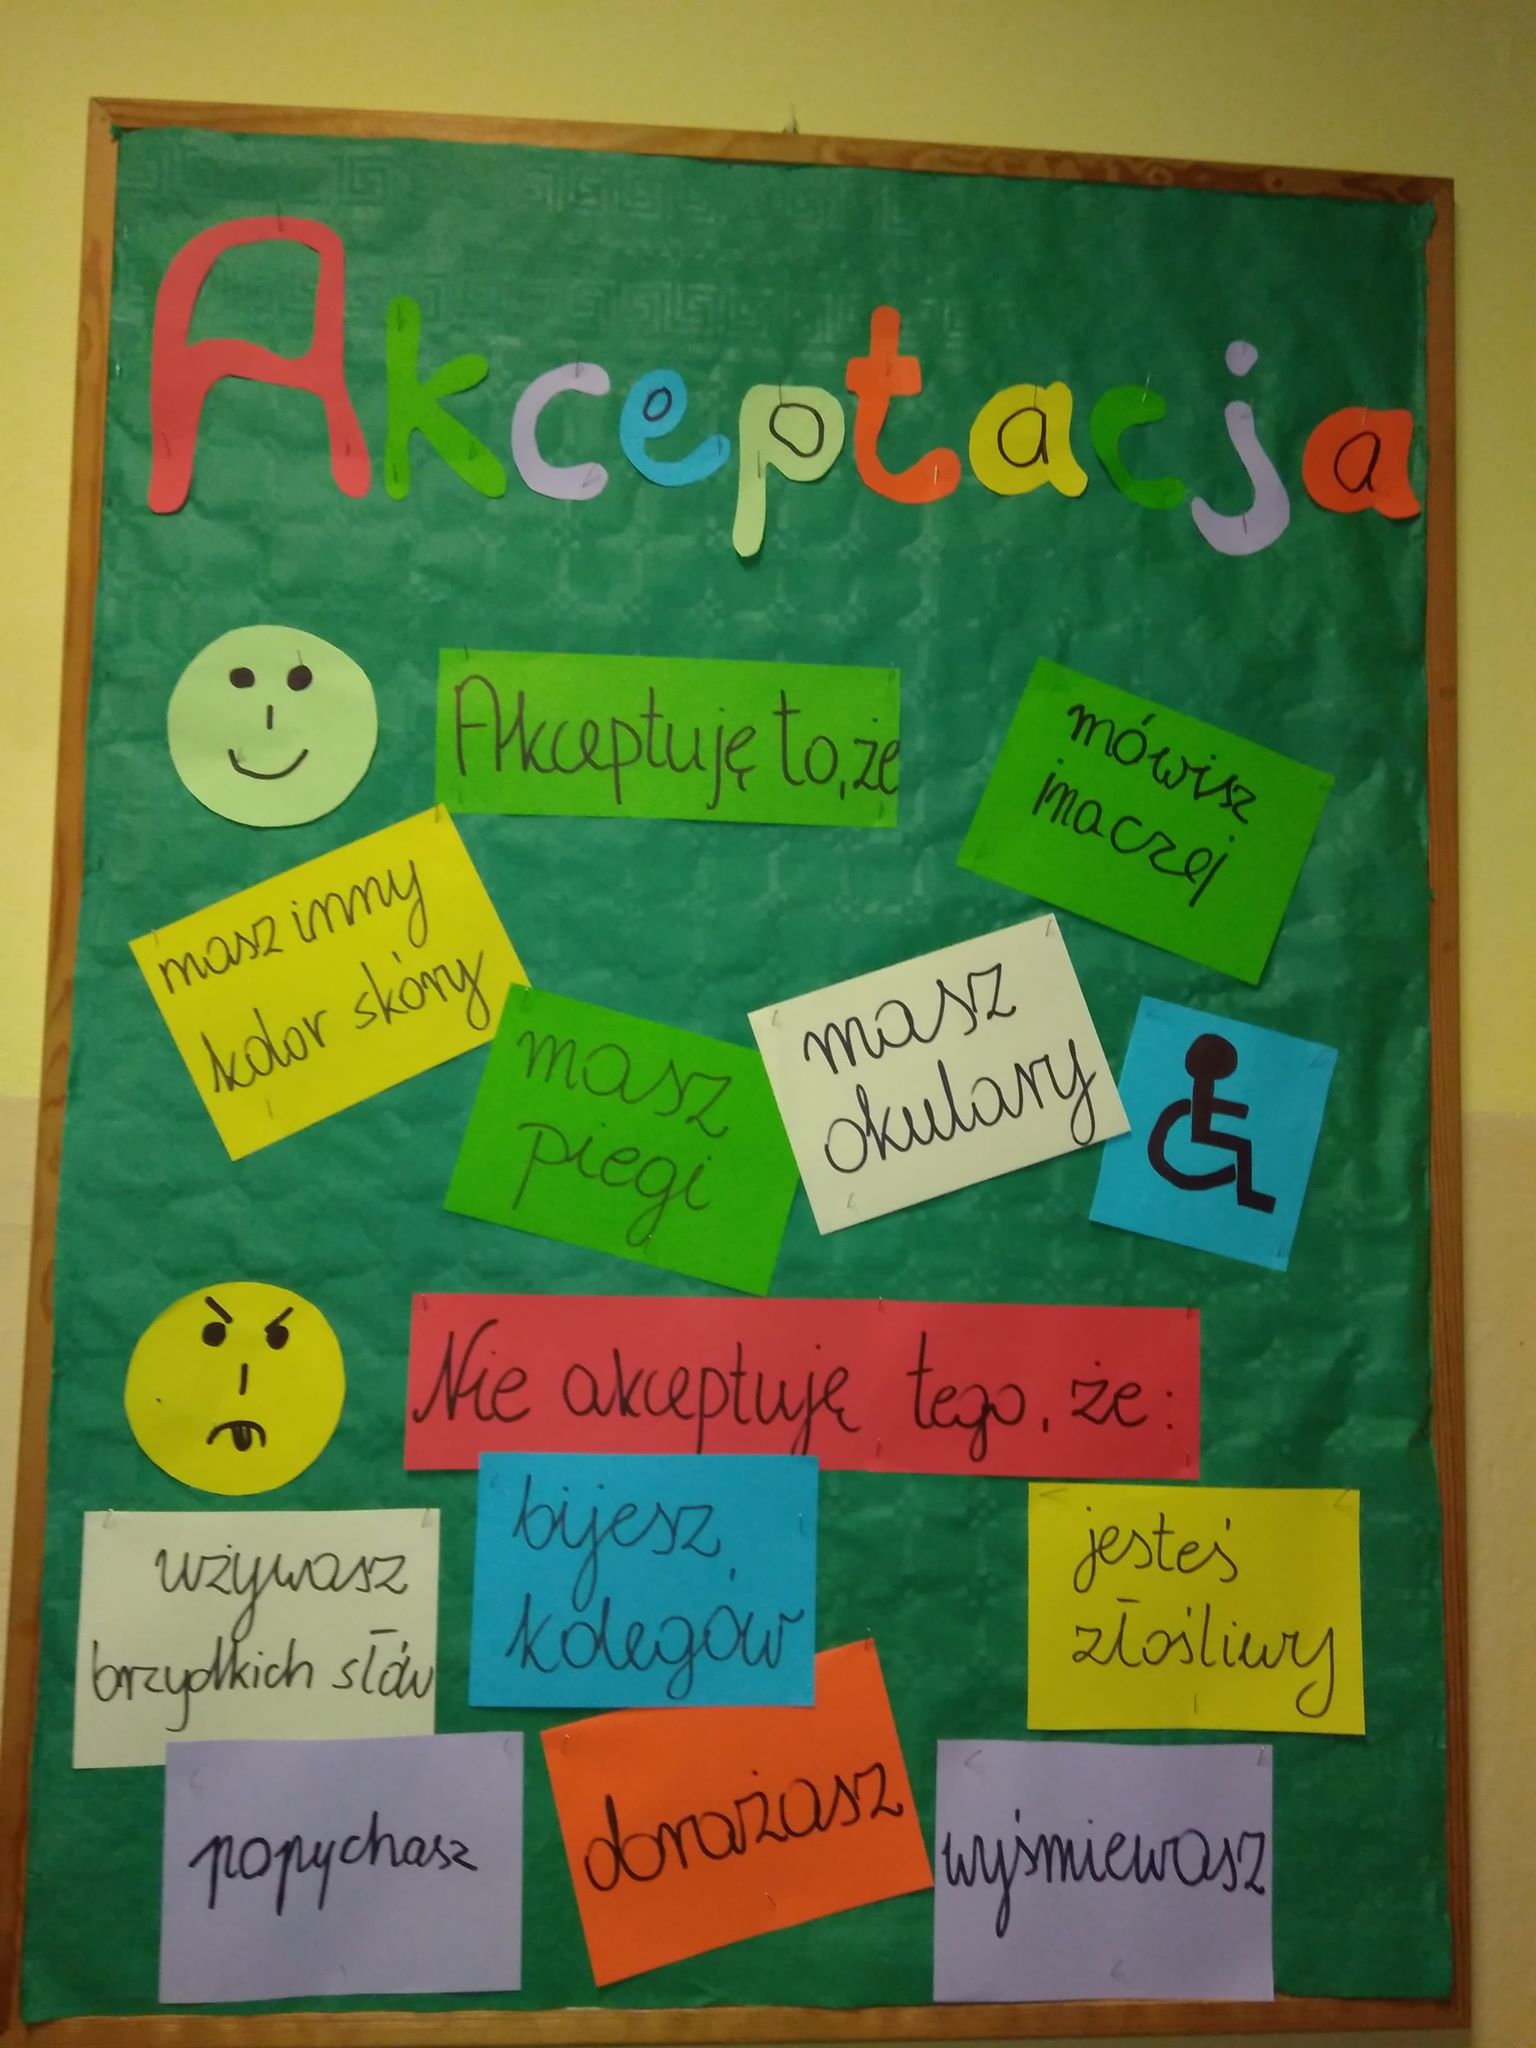 Akceptacja
Akceptuję to, że
mówisz
inaczej
masz inny
kolor skóry
masz
piegi
masz
okulary
Nie akceptuję tego, że:
używasz
brzydkich słów
bijesz
kolegów
jesteś
złośliwy
popychasz
dorażasz
wyśmiewasz